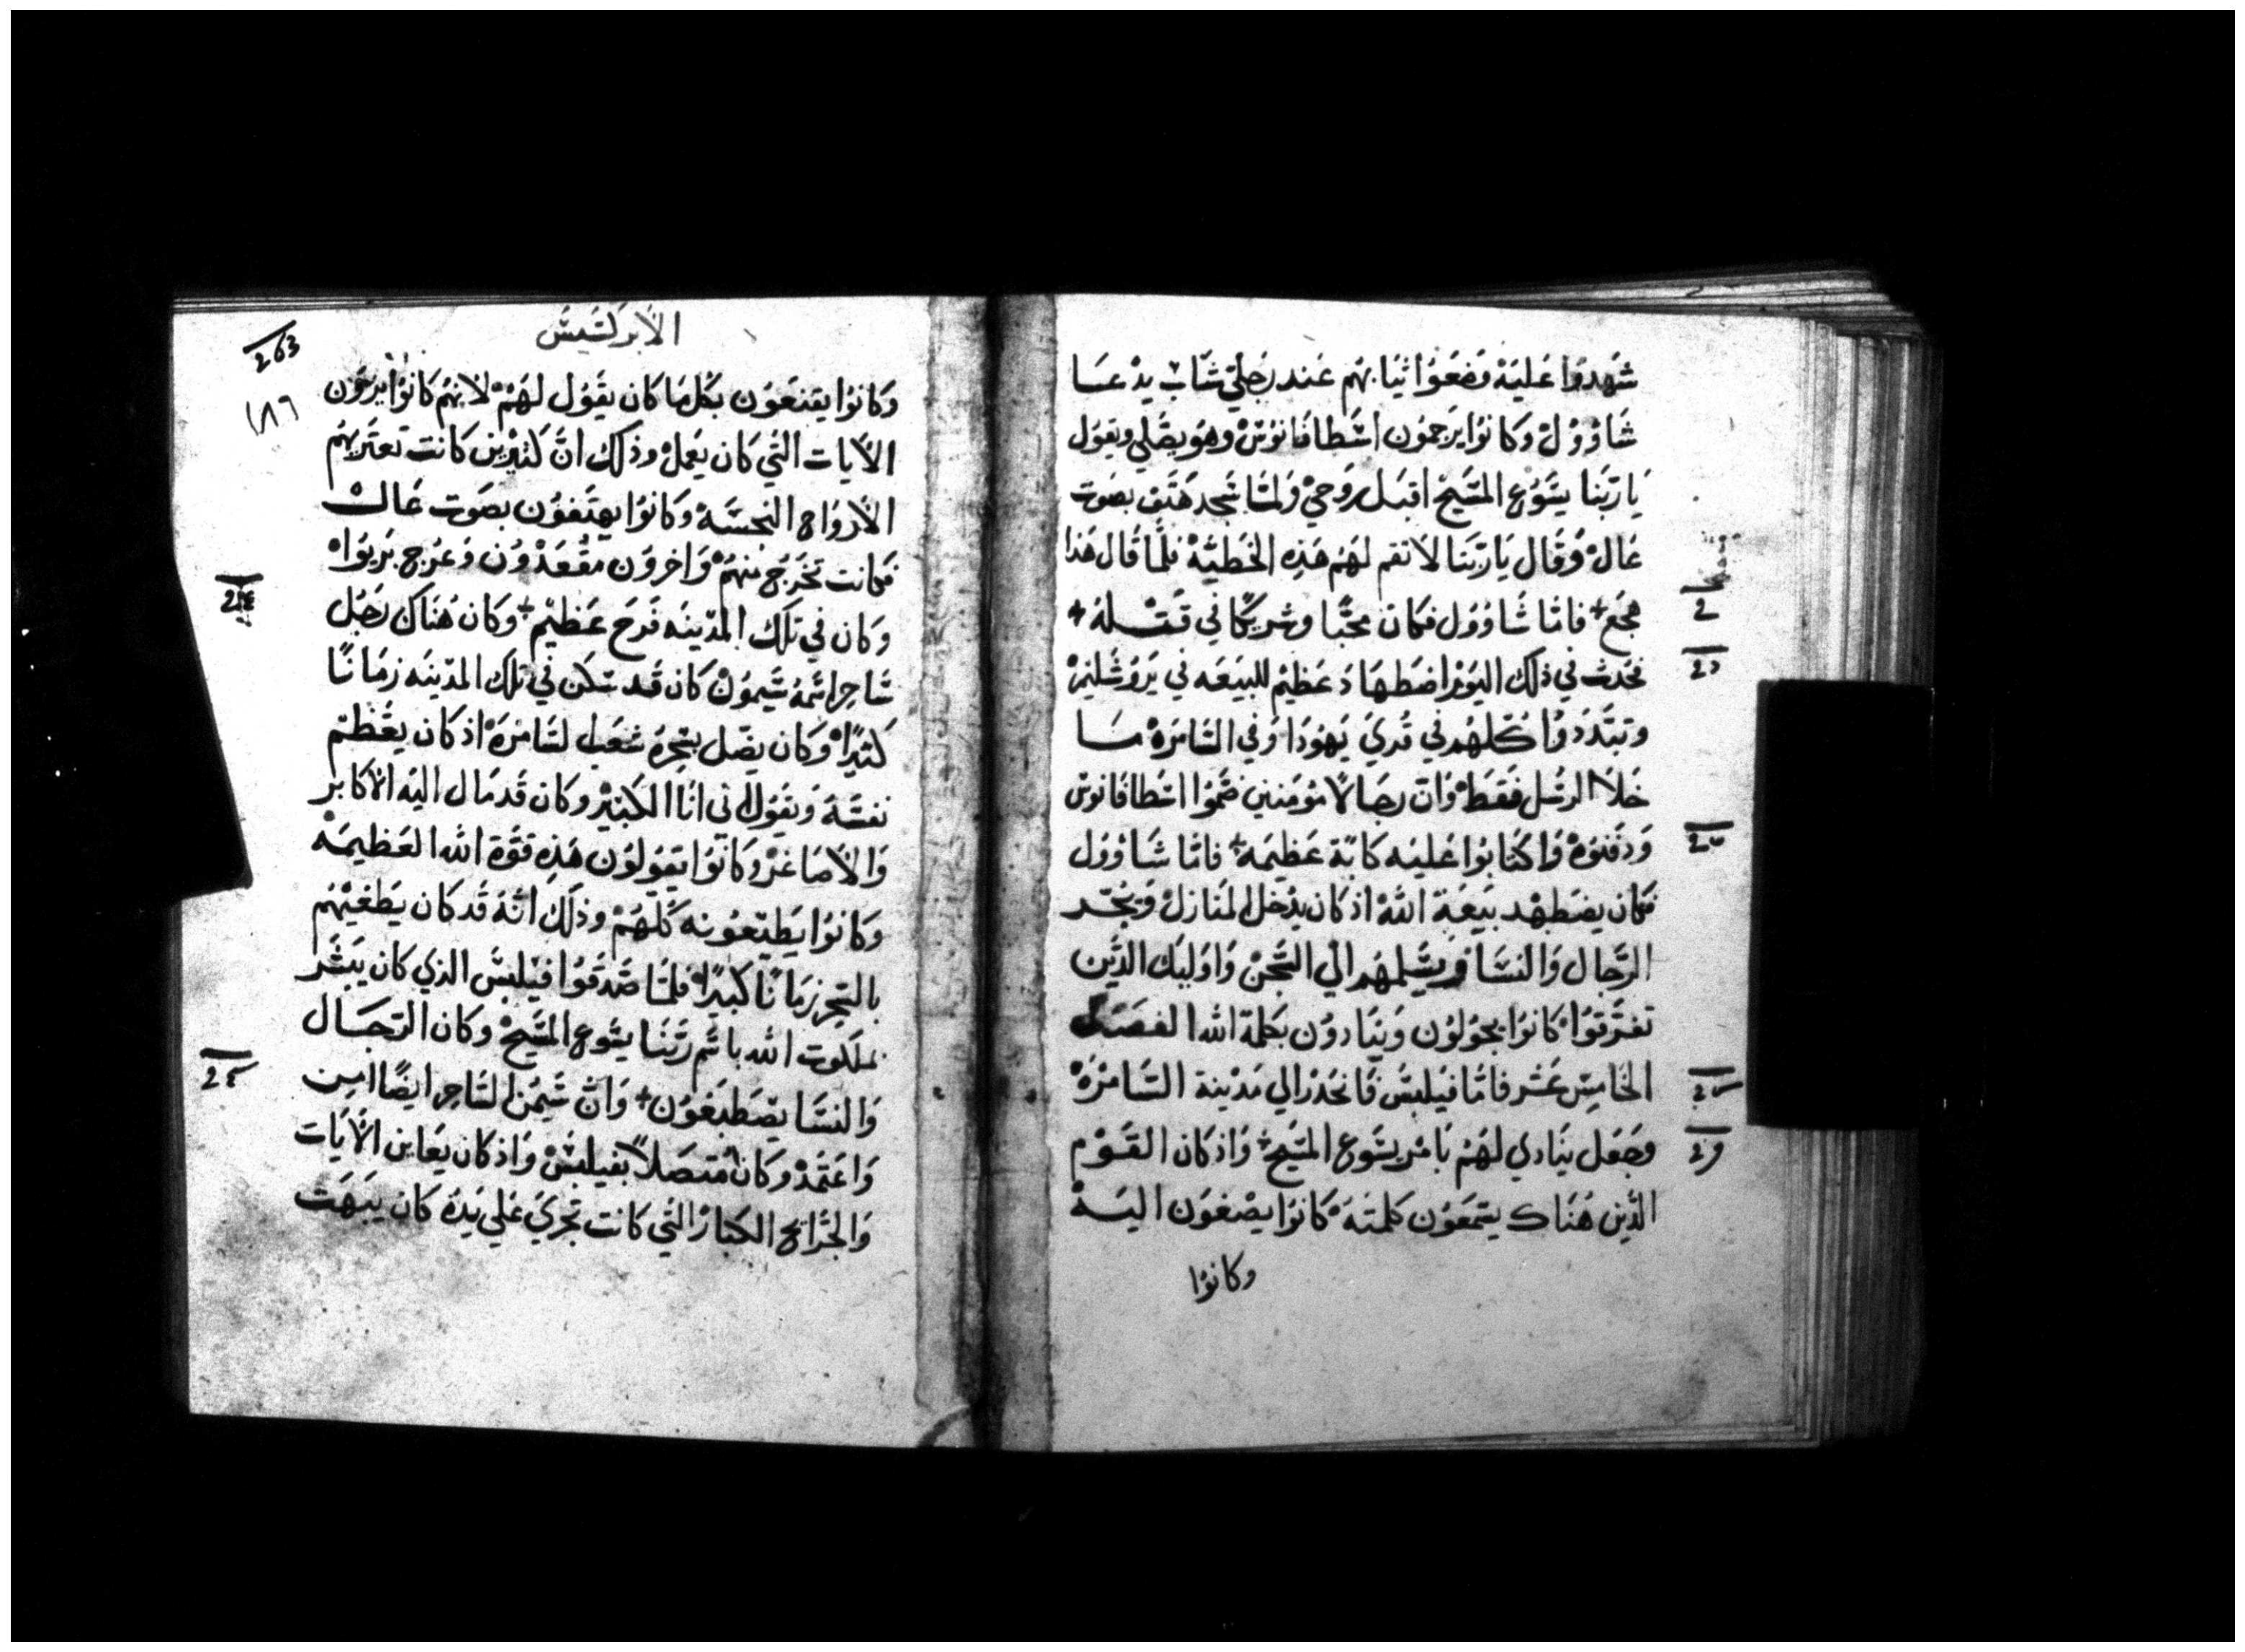 شهدوا عليه وضعوا ثيابهم عند رجلي شاب يدعا
شاوول وكانوا يرجمون اسطافانوس وهو يصلي ويقول
يا ربنا يسوع المسيح اقبل روحي ولما سجد هتف بصوت
عال وقال يا ربنا لا تقم لهم هذه الخطية فلما قال هذا
هجع + فاما شاوول فكان محبا وشريكا في قتله +
فحدث في ذلك اليوم اضطهاد عظيم للبيعه في يروشليم
وتبددوا كلهم في قري يهودا وفي السامره ما
خلا الرسل فقط وان رجالا مومنين ضموا اسطافانوس
ودفنوه واكتابوا عليه كابة عظيمه + فاما شاوول
فكان يضطهد بيعة الله اذ كان يدخل المنازل ويجر
الرجال والنسا ويسلمهم الي السجن واوليك الذين
تفرقوا كانوا يجولون وينادون بكلمة الله الفصل
الخامس عشر فاما فيلبس فانحدر الي مدينة السامره
وجعل ينادي لهم بامر يسوع المسيح + واذ كان القوم
الذين هناك يسمعون كلمته كانوا يصغون اليه
وكانوا
الابركسيس
263
١٨٦
وكانوا يقنعون بكلما كان يقول لهم لانهم كانوا يرون
الايات التي كان يعمل وذلك ان كثيرين كانت تعتريهم
الارواح النجسه وكانوا يهتفون بصوت عال
فكانت تخرج منهم واخرون مقعدون وعرج بريوا
وكان في تلك المدينه فرح عظيم + وكان هناك رجل
ساحر اسمه سيمون كان قد سكن في تلك المدينه زمانا
كثيرا وكان يضل بسحره شعب السامره اذ كان يعظم
نفسه ويقول اني انا الكبير وكان قد مال اليه الاكابر
والاصاغر وكانوا يقولون هذه قوة الله العظيمه
وكانوا يطيعونه كلهم وذلك انه قد كان يطغيهم
بالسحر زمانا كبيرا فلما صدقوا فيلبس الذي كان يبشر
بملكوت الله باسم ربنا يسوع المسيح وكان الرجال
والنسا يصطبغون + وان سيمن الساحر ايضا امن
واعتمد وكان متصلا بفيلبس واذ كان يعاين الايات
والجرايح الكبار التي كانت تجري علي يده كان يبهت